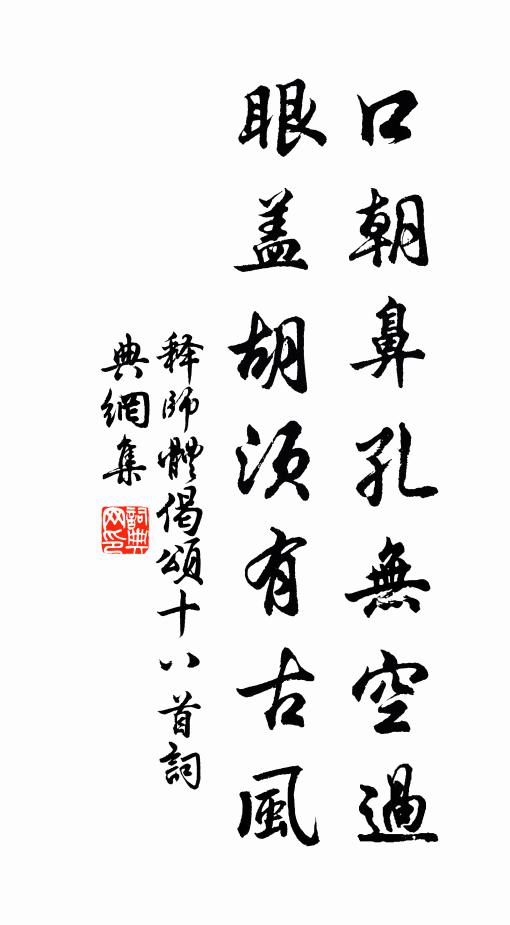 口朝鼻孔無空過
眼盖胡须有古風
释師體偈頌十八首詞
典網集
詞典网印